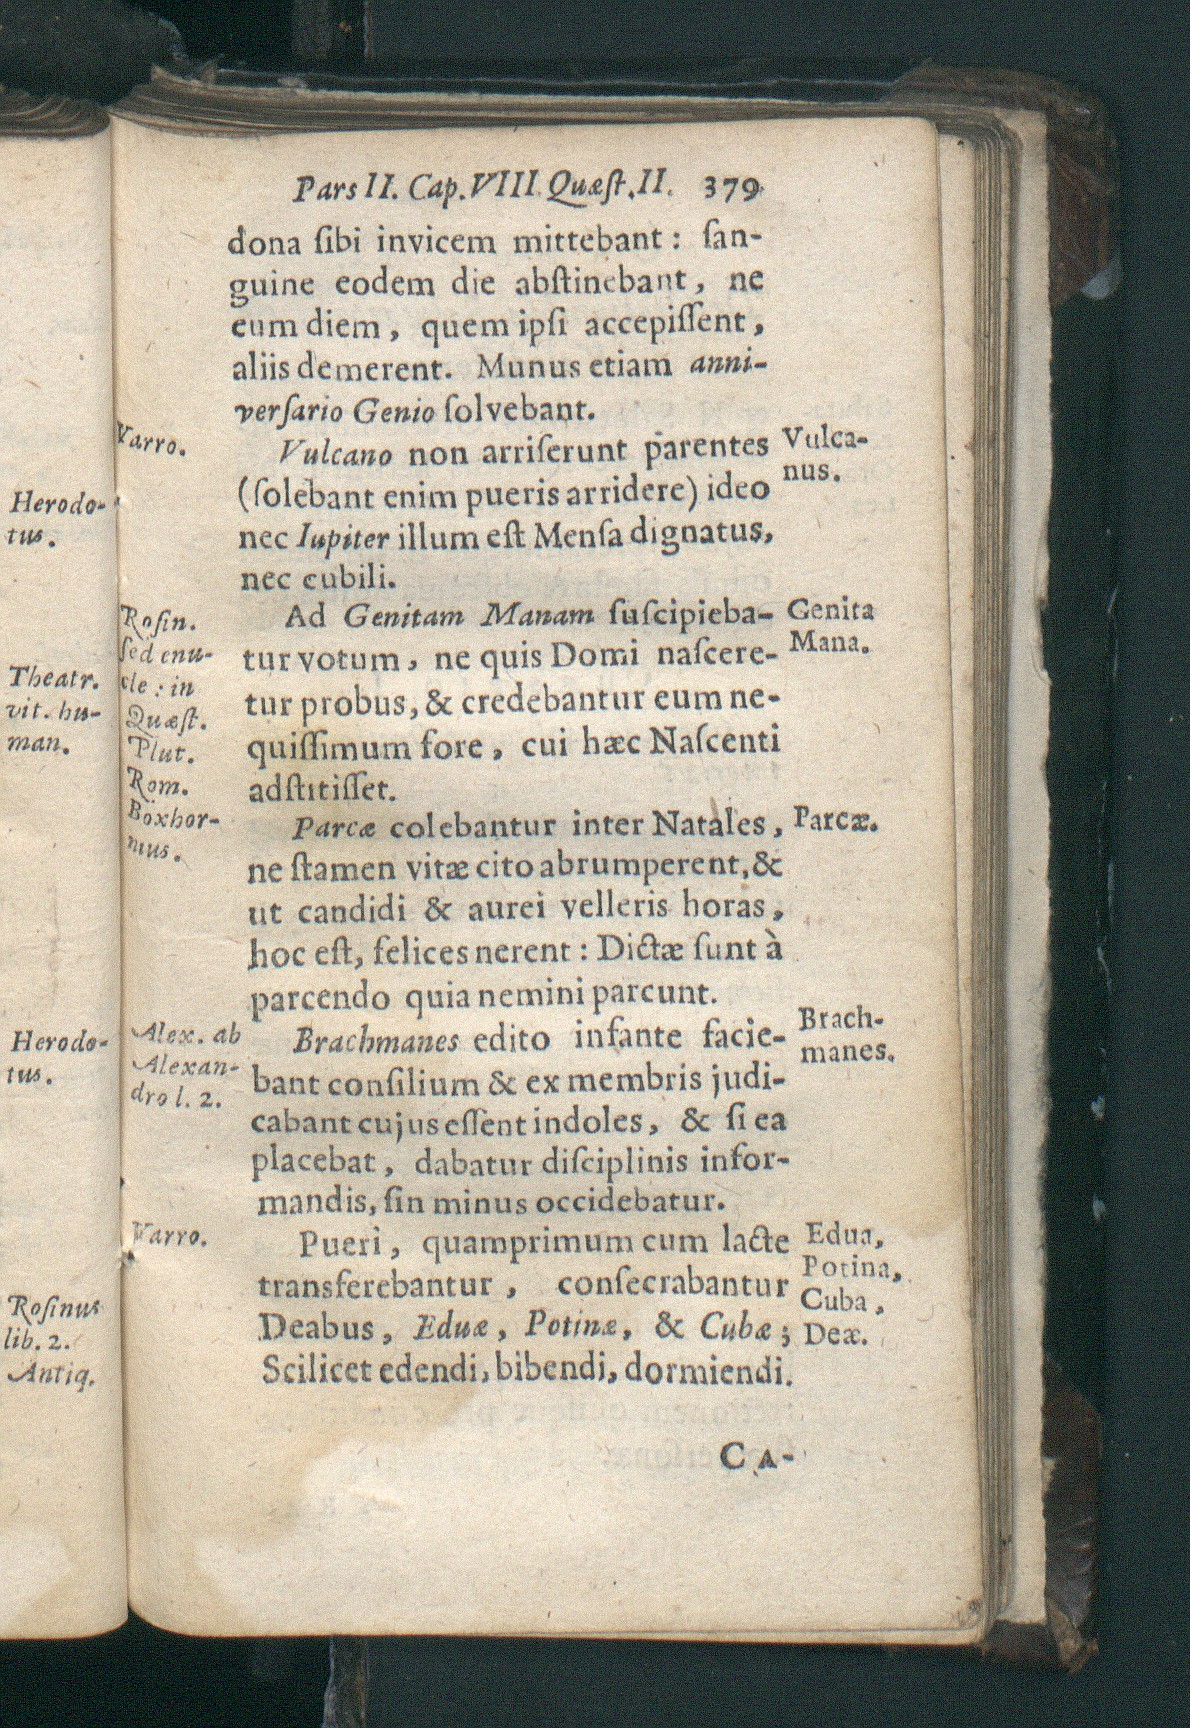 Herodo-
tus.
Theatr.
vit. hu-
man.
Herodo-
tus.
Rosinus
lib. 2.
Antiq.
Pars II. Cap. VIII. Quæſt. II. 379
dona ſibi invicem mittebant : ſan-
guine eodem die abſtinebant, ne
eum diem, quem ipſi accepiſſent,
aliis demerent. Munus etiam anni-
verſario Genio ſolvebant.
Varro.
Vulcano non arriſerunt parentes
(ſolebant enim pueris arridere) ideo
nec Iupiter illum eſt Menſa dignatus,
nec cubili.
Vulca-
nus.
Roſin.
ſed enu-
cle : in
Quæſt.
Plut.
Rom.
Boxhor-
nius.
Ad Genitam Manam ſuſcipieba-
tur votum, ne quis Domi naſcere-
tur probus, & credebantur eum ne-
quiſſimum fore, cui hæc Naſcenti
adſtitiſſet.
Genita
Mana.
Parcæ colebantur inter Natales,
ne ſtamen vitæ cito abrumperent, &
ut candidi & aurei velleris horas,
hoc eſt, felices nerent : Dictæ ſunt à
parcendo quia nemini parcunt.
Parcæ.
Alex. ab
Alexan-
dro l. 2.
Brachmanes edito infante facie-
bant conſilium & ex membris judi-
cabant cujus eſſent indoles, & ſi ea
placebat, dabatur diſciplinis infor-
mandis, ſin minus occidebatur.
Brach-
manes.
Varro.
Pueri, quamprimum cum lacte
transferebantur, conſecrabantur
Deabus, Eduæ, Potinæ, & Cubæ ;
Scilicet edendi, bibendi, dormiendi.
Edua,
Potina,
Cuba,
Deæ.
CA-